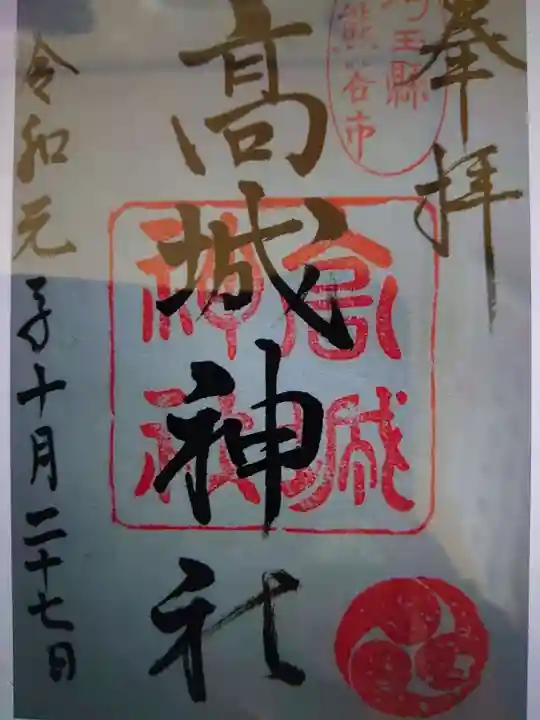 奉拝
埼玉縣
熊谷市
髙城神社
高城
神社
令和元年十月二十七日